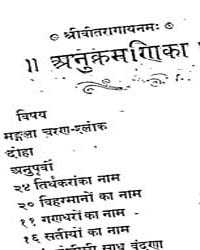 श्रीवीतरागायनमः
॥ अनुक्रमणिका
विषय
मङ्गला चरण-श्लोक
दोहा
अनुपूर्वी
२४ तिर्थकरांका नाम
२० विहरमानों का नाम
११ गणधरों का नाम
१६ सतीयों का नाम
साधु वंदणा